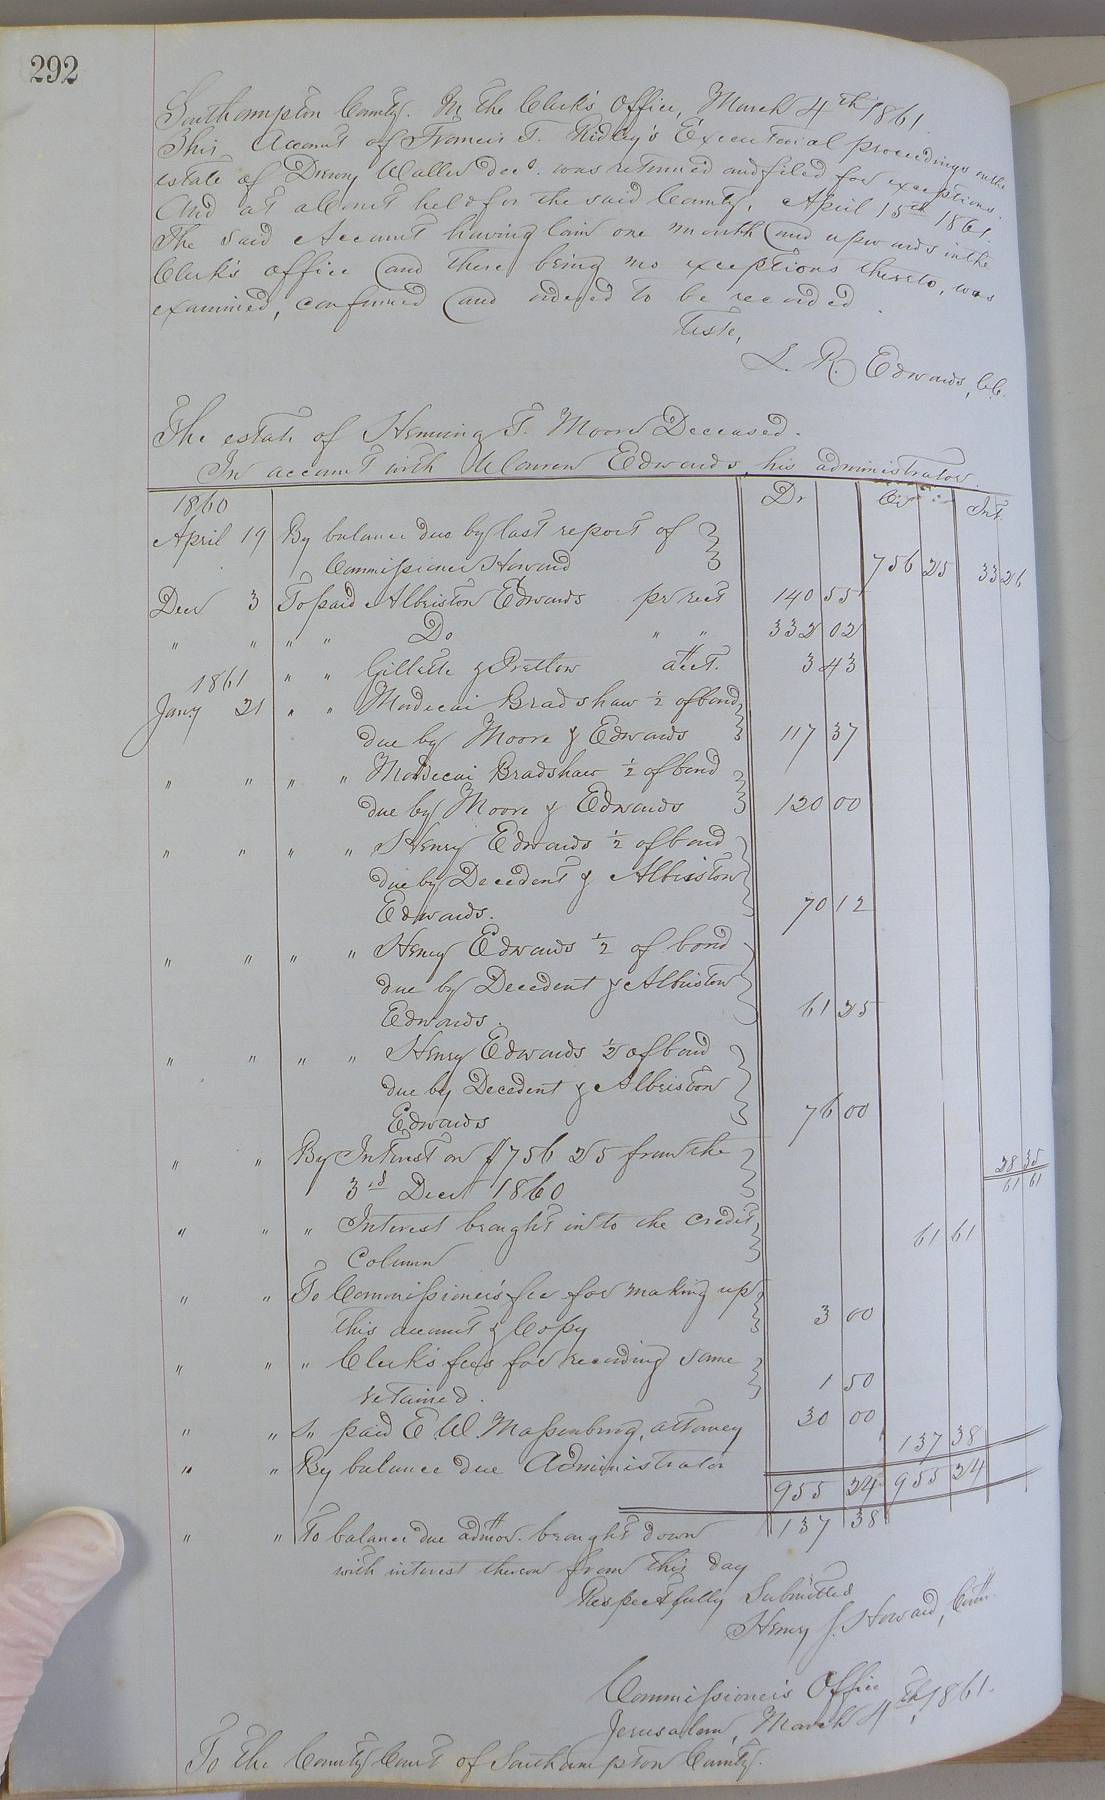 292
Southampton County. In the Clerk's Office, March 4th 1861.
This Account of Francis T. Ridley's Executorial proceedings on the
estate of Drewry Waller decd. was returned and filed for exceptions.
And at a Court held for the said County, April 15th 1861.
The said Account having lain one month and upwards in the
Clerk's office and there being no exceptions thereto, was
examined, confirmed and ordered to be recorded.
Teste,
L. R. Edwards, C.C.
The estate of Henning T. Moore Deceased.
In account with Edwards, his administrator.
1860 Dr Cr Int.
April 19 By balance due by last report of
Commissioner Howard 756 25 33 26
Decr 3 To paid Albriston Edwards pr rect 140 55
" " " " Do " " 332 02
" " Gillette & Pretlow acct. 3 43
1861
Jany 21 " " Mordecai Bradshaw ½ of bond
due by Moore & Edwards 117 37
" " " " Mordecai Bradshaw ½ of bond
due by Moore & Edwards 120 00
" " " " Henry Edwards ½ of bond
due by Decedent & Albriston
Edwards. 70 12
" " " " Henry Edwards ½ of bond
due by Decedent & Albriston
Edwards. 61 25
" " " " Henry Edwards ½ of bond
due by Decedent & Albriston
Edwards 76 00
" " By Interest on $756 25 from the 28 35
3rd Decr 1860 61 61
" " " Interest brought into the credit
Column 61 61
" " To Commissioner's fee for making up
this account & Copy 3 00
" " " Clerk's fees for recording same
retained. 1 50
" " " paid E. W. Massenburg, attorney 30 00
" " By balance due Administrator 137 38
955 24 955 24
" " To balance due admor. brought down 137 38
with interest thereon from this day
Respectfully Submitted
Henry J. Howard, Comr.
Commissioner's Office
Jerusalem, March 4th, 1861.
To the County Court of Southampton County.